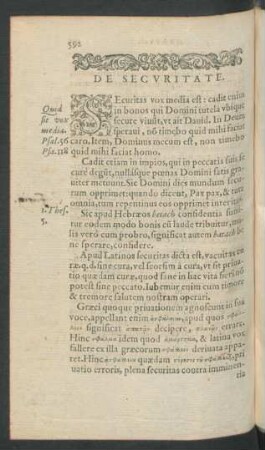 592
DE SECVRITATE.
Quid
sit vox
media.
Psal. 56
Psa. 118
SEcuritas vox media est: cadit enim
in bonos qui Domini tutela vbique
secure viuūt, vt ait Dauid. In Deum
speraui, nō timebo quid mihi faciat
caro. Item, Dominus mecum est, non timebo
quid mihi faciat homo.
Cadit etiam in impios, qui in peccatis suis
degūt, nullasque pœnas Domini satis gra-
uiter metuunt. Sic Domini dies mundum secu-
rum opprimet: quando dicent, Pax pax, & tuta
omnia, tum repentinus eos opprimet interitus.
1. Thess.
5.
Sic apud Hebræos batach confidentia sumi-
tur eodem modo bonis vt laude tribuitur, ma-
lis verò cum probro, significat autem batach be-
ne sperare, confidere.
Apud Latinos securitas dicta est, vacuitas cu-
ræ, q. d. sine cura, vel seorsim à cura, vt sit priua-
tio quædam curæ, quod sine in hac vita seri nō
potest sine peccato. Iubemur enim cum timore
& tremore salutem nostram operari.
Græci quoque priuationem agnoscunt in sua
voce, appellant enim apud quos
significat decipere, errare.
Hinc idem quod & latina vox
fallere ex illa græcorum deriuata appa-
ret. Hinc quædam pri-
uatio erroris, plena securitas contra imminen-
tia